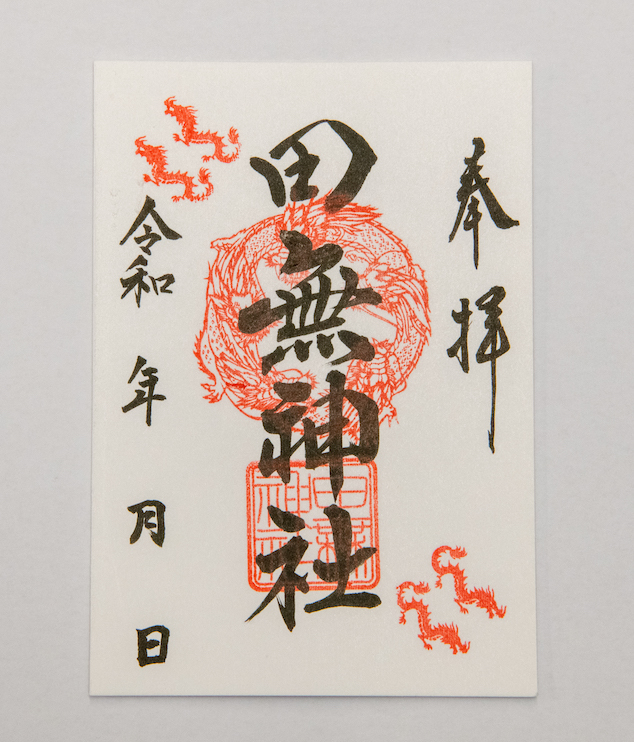 奉拝
田無神社
令和 年 月 日
田無神社